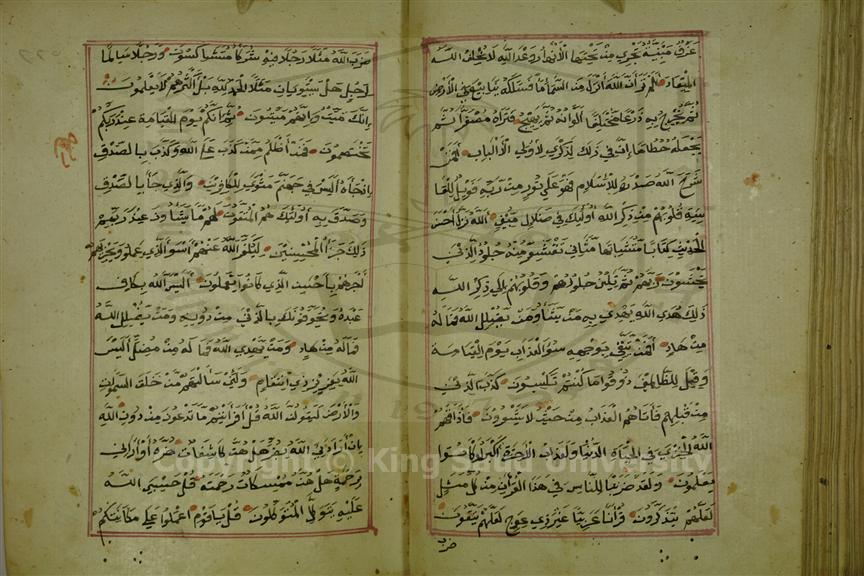 غرف مبنية تجري من تحتها الأنهار وعد الله لا يخلف الله
الميعاد ألم تر أن الله أنزل من السماء ماء فسلكه ينابيع في الأرض
ثم يخرج به زرعا مختلفا ألوانه ثم يهيج فتراه مصفرا ثم
يجعله حطاما إن في ذلك لذكرى لأولي الألباب أفمن
شرح الله صدره للإسلام فهو على نور من ربه فويل للقا
سية قلوبهم من ذكر الله أولئك في ضلال مبين الله نزل أحسن
الحديث كتابا متشابها مثاني تقشعر منه جلود الذين
يخشون ربهم ثم تلين جلودهم وقلوبهم إلى ذكر الله
ذلك هدى الله يهدي به من يشاء ومن يضلل الله فما له
من هاد أفمن يتقي بوجهه سوء العذاب يوم القيامة
وقيل للظالمين ذوقوا ما كنتم تكسبون كذب الذين
من قبلهم فأتاهم العذاب من حيث لا يشعرون فأذاقهم
الله الخزي في الحياة الدنيا ولعذاب الآخرة أكبر لو كانوا
يعلمون ولقد ضربنا للناس في هذا القرآن من كل مثل
لعلهم يتذكرون قرآنا عربيا غير ذي عوج لعلهم يتقون
ضرب
ضرب الله مثلا رجلا فيه شركاء متشاكسون ورجلا سالما
لرجل هل يستويان مثلا الحمد لله بل أكثرهم لا يعلمون
إنك ميت وإنهم ميتون ثم إنكم يوم القيامة عند ربكم
تختصمون فمن أظلم ممن كذب على الله وكذب بالصدق
إذ جاءه أليس في جهنم مثوى للكافرين والذي جاء بالصدق
وصدق به أولئك هم المتقون لهم ما يشاءون عند ربهم
ذلك جزاء المحسنين ليكفر الله عنهم أسوأ الذي عملوا ويجزيهم
أجرهم بأحسن الذي كانوا يعملون أليس الله بكاف
عبده ويخوفونك بالذين من دونه ومن يضلل الله
فما له من هاد ومن يهدي الله فما له من مضل أليس
الله بعزيز ذي انتقام ولئن سألتهم من خلق السموات
والأرض ليقولن الله قل أفرأيتم ما تدعون من دون الله
إن أرادني الله بضر هل هن كاشفات ضره أو أرادني
برحمة هل هن ممسكات رحمته قل حسبي الله
عليه يتوكل المتوكلون قل يا قوم اعملوا على مكانتكم
Copyright © King Saud University
1957